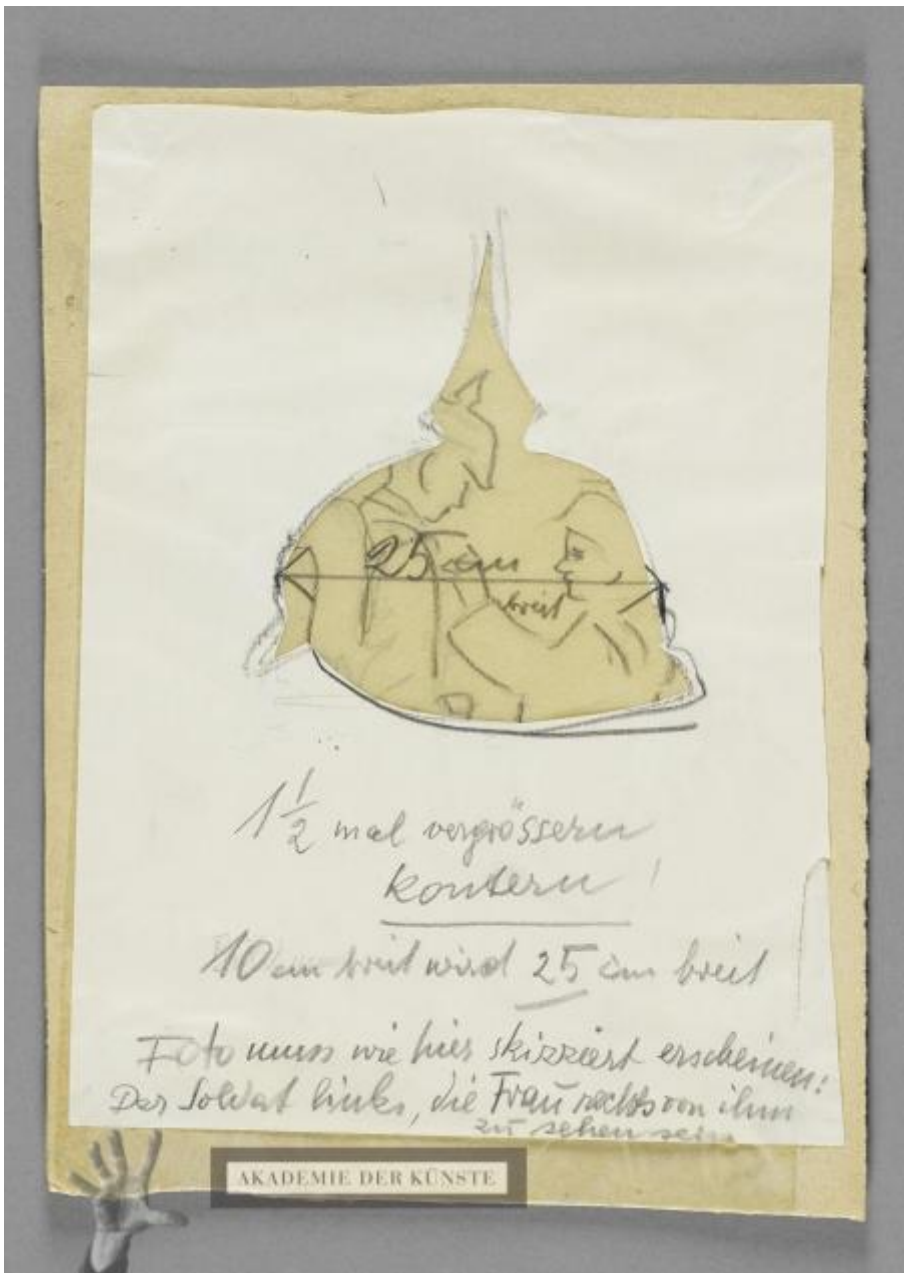 25 cm
breit
1 1/2 mal vergrössern
kontern!
10 cm breit wird 25 cm breit
Foto muss wie hier skizziert erscheinen:
Der Soldat links, die Frau rechts von ihm
zu sehen sein
AKADEMIE DER KÜNSTE